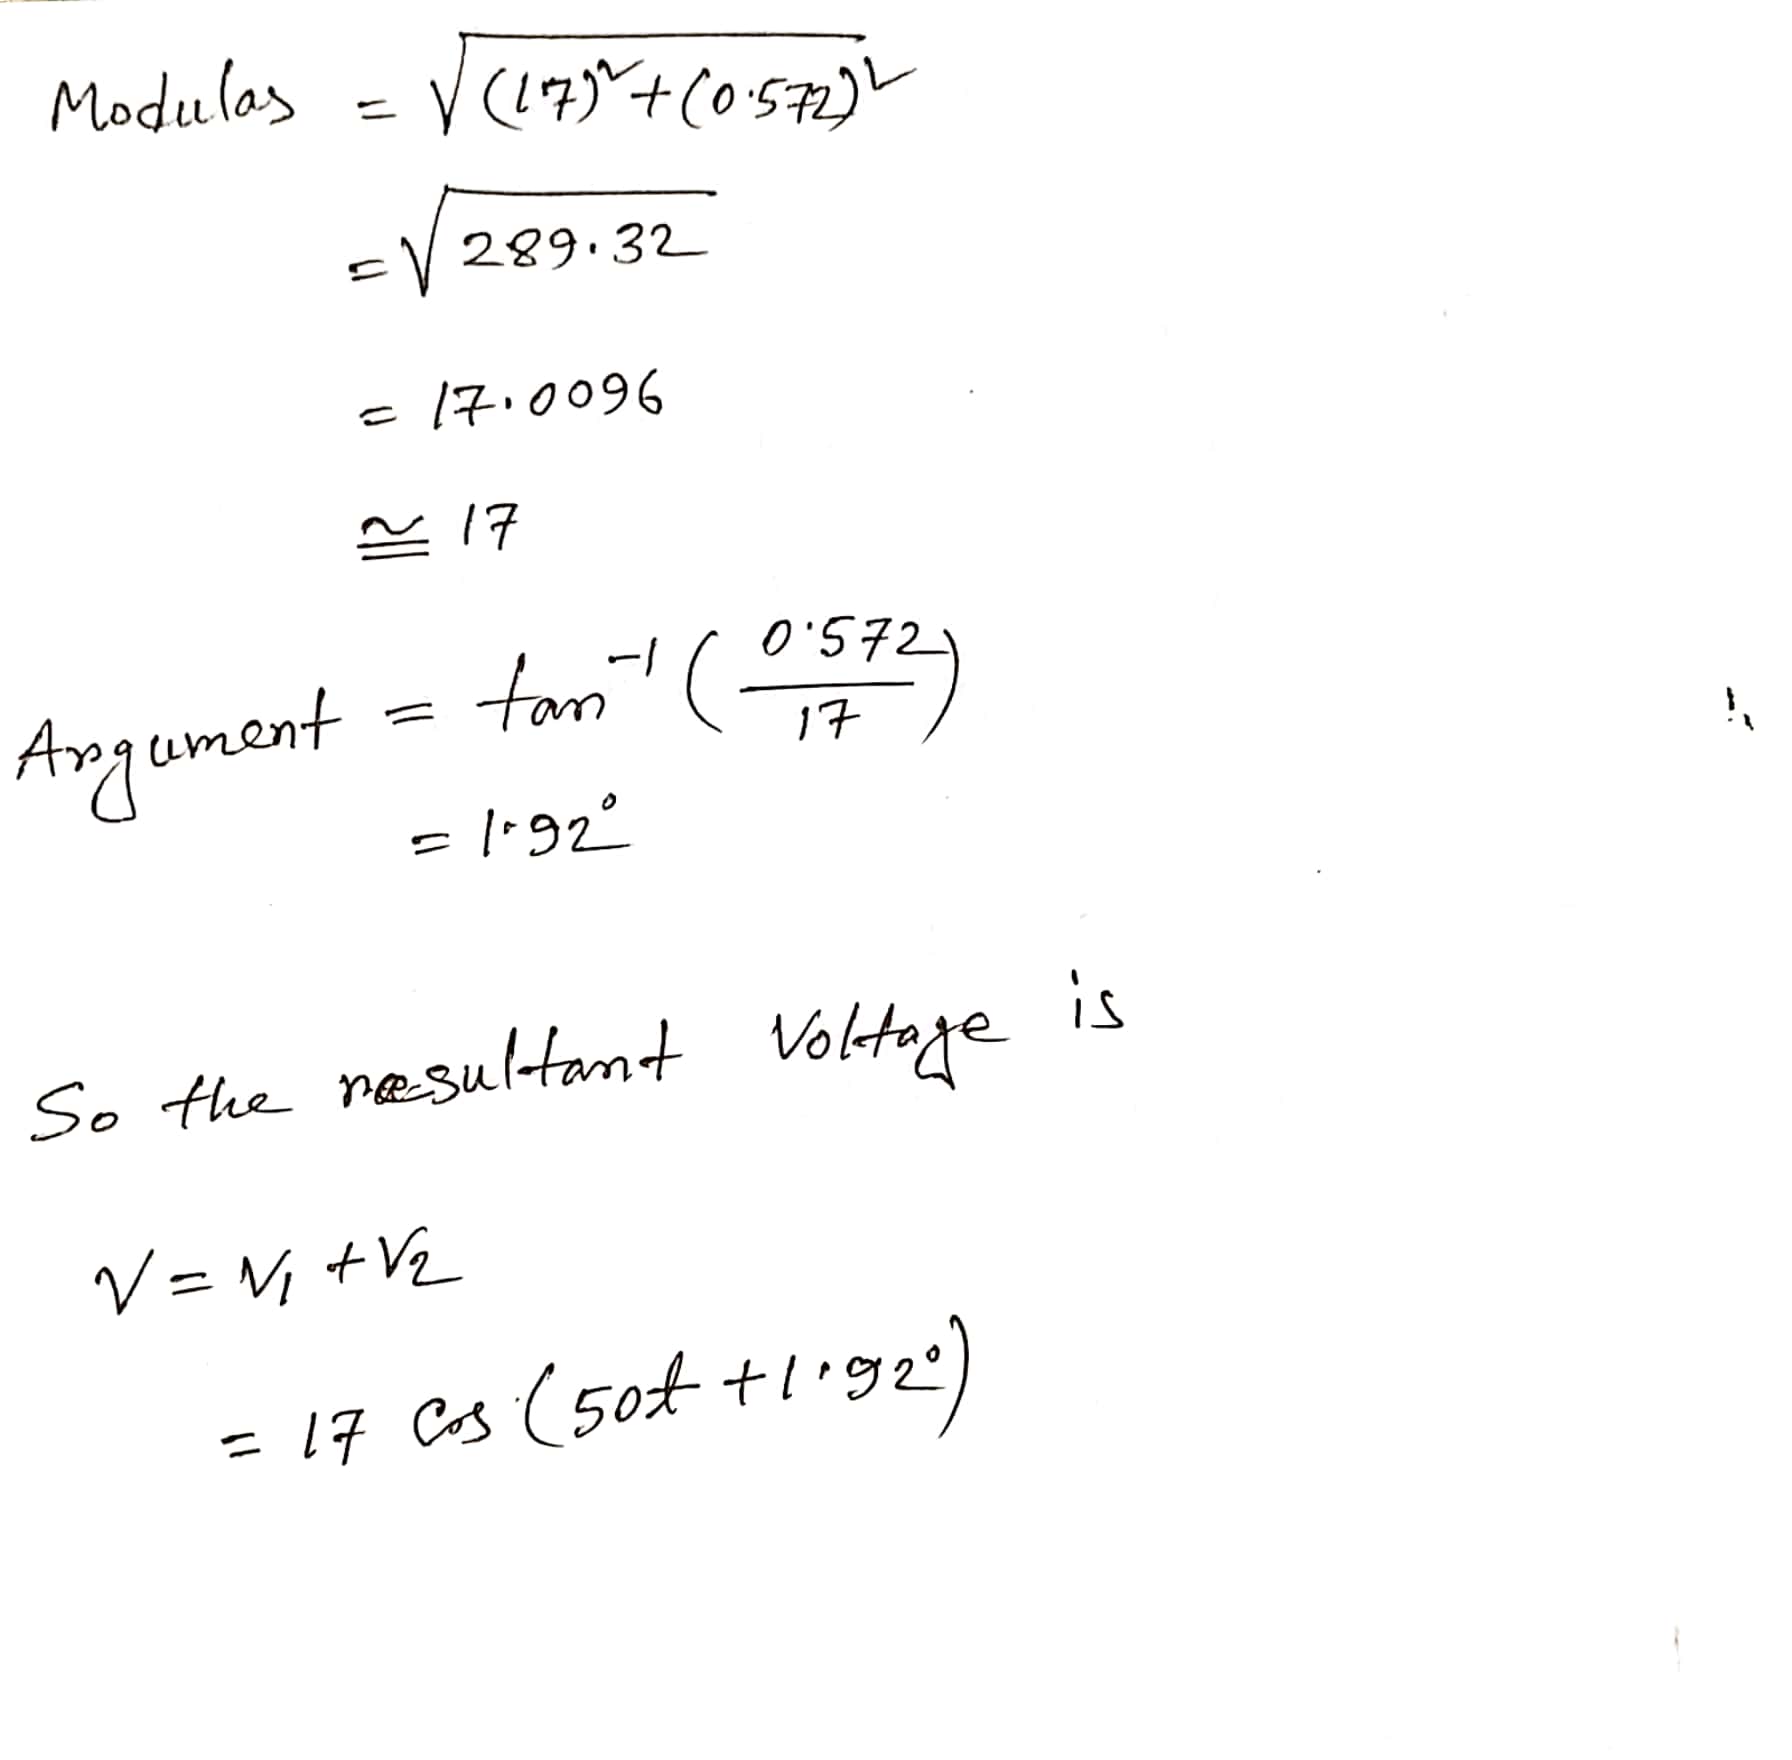 Modulas = √(17)² + (0.572)²
= √289.32
= 17.0096
≅ 17
Argument = tan⁻¹ (0.572/17)
= 1.92°
So the resultant Voltage is
V = V₁ + V₂
= 17 Cos (50t + 1.92°)